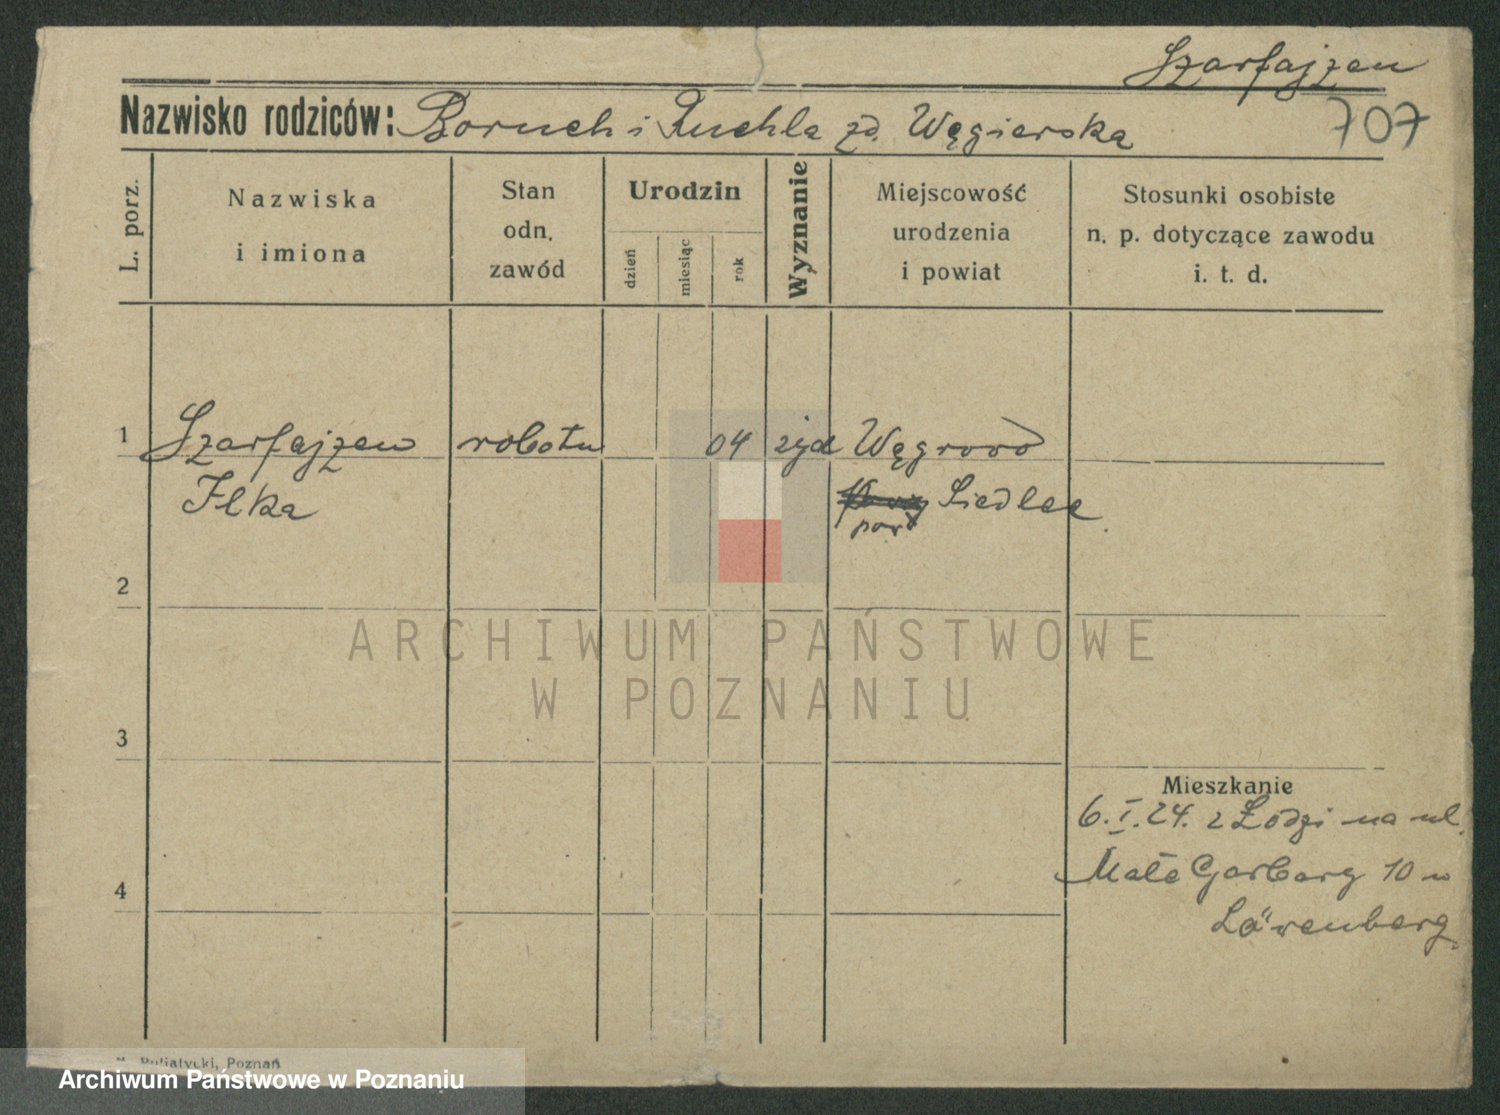 Szarfajzen
Nazwisko rodziców: Boruch i Ruchla zd. Węgierska
707
L. porz.
Nazwiska
i imiona
Stan
odn.
zawód
Urodzin
dzień
miesiąc
rok
Wyznanie
Miejscowość
urodzenia
i powiat
Stosunki osobiste
n. p. dotyczące zawodu
i. t. d.
1 Szarfajzen robotn 04 żyd Węgrowo
Ilka Siedlce
pow
2
ARCHIWUM PAŃSTWOWE
W POZNANIU
3
Mieszkanie
6. I. 24. z Łodzi na ul.
Małe Garbary 10 u
4
Löwenberg.
Putiatycki, Poznań
Archiwum Państwowe w Poznaniu